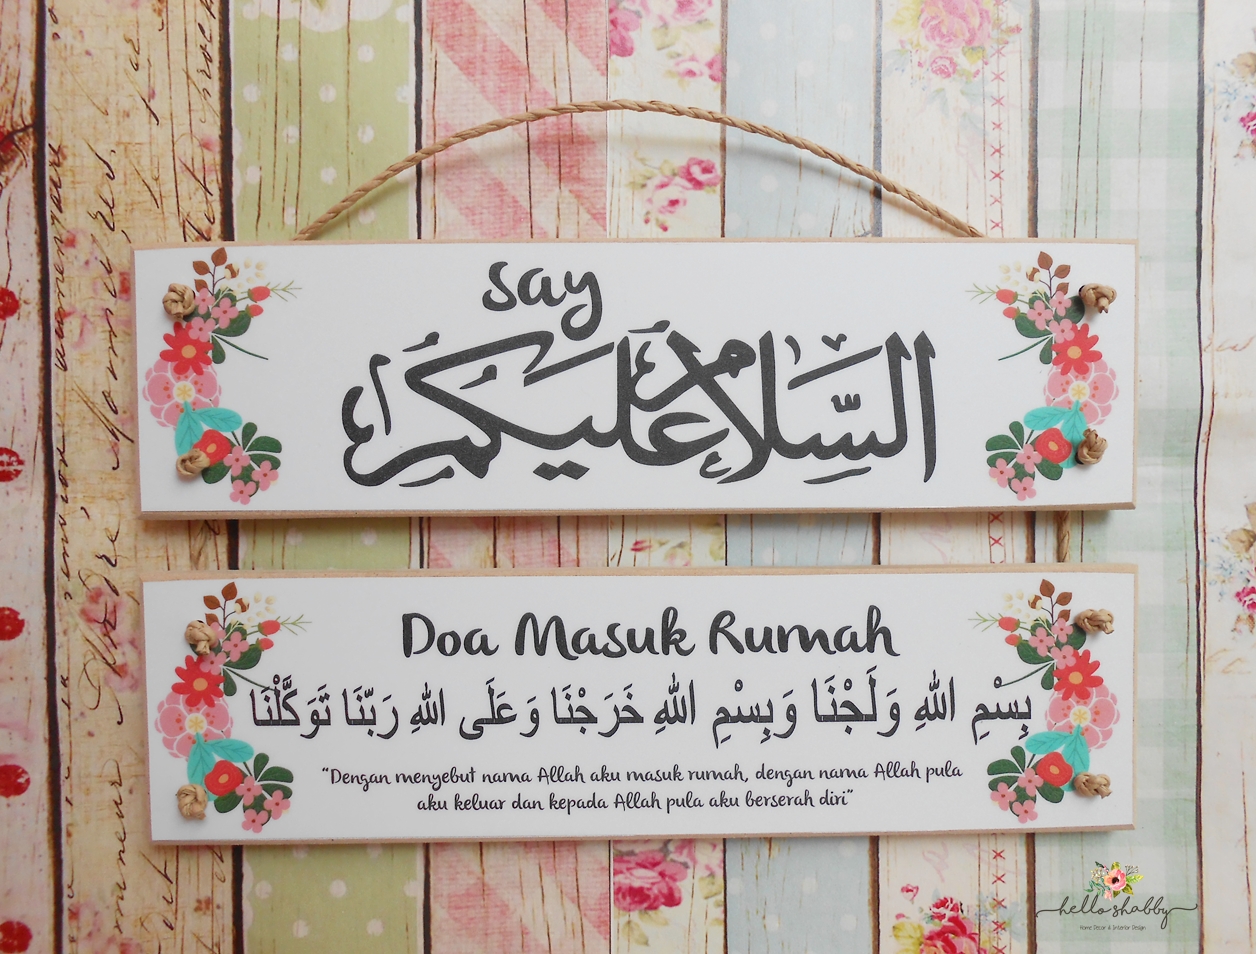 say
السَّلَامُ عَلَيْكُمْ
Doa Masuk Rumah
بِسْمِ اللهِ وَلَجْنَا وَبِسْمِ اللهِ خَرَجْنَا وَعَلَى اللهِ رَبِّنَا تَوَكَّلْنَا
"Dengan menyebut nama Allah aku masuk rumah, dengan nama Allah pula
aku keluar dan kepada Allah pula aku berserah diri"
hello shabby
Home Decor & Interior Design